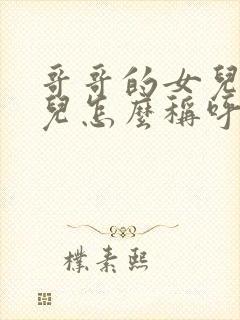 哥哥的女兒
兒怎麼稱呼
樸素熙